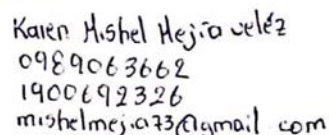 Karen Mishel Mejía veléz
0989063662
1900692326
mishelmejia73@gmail com